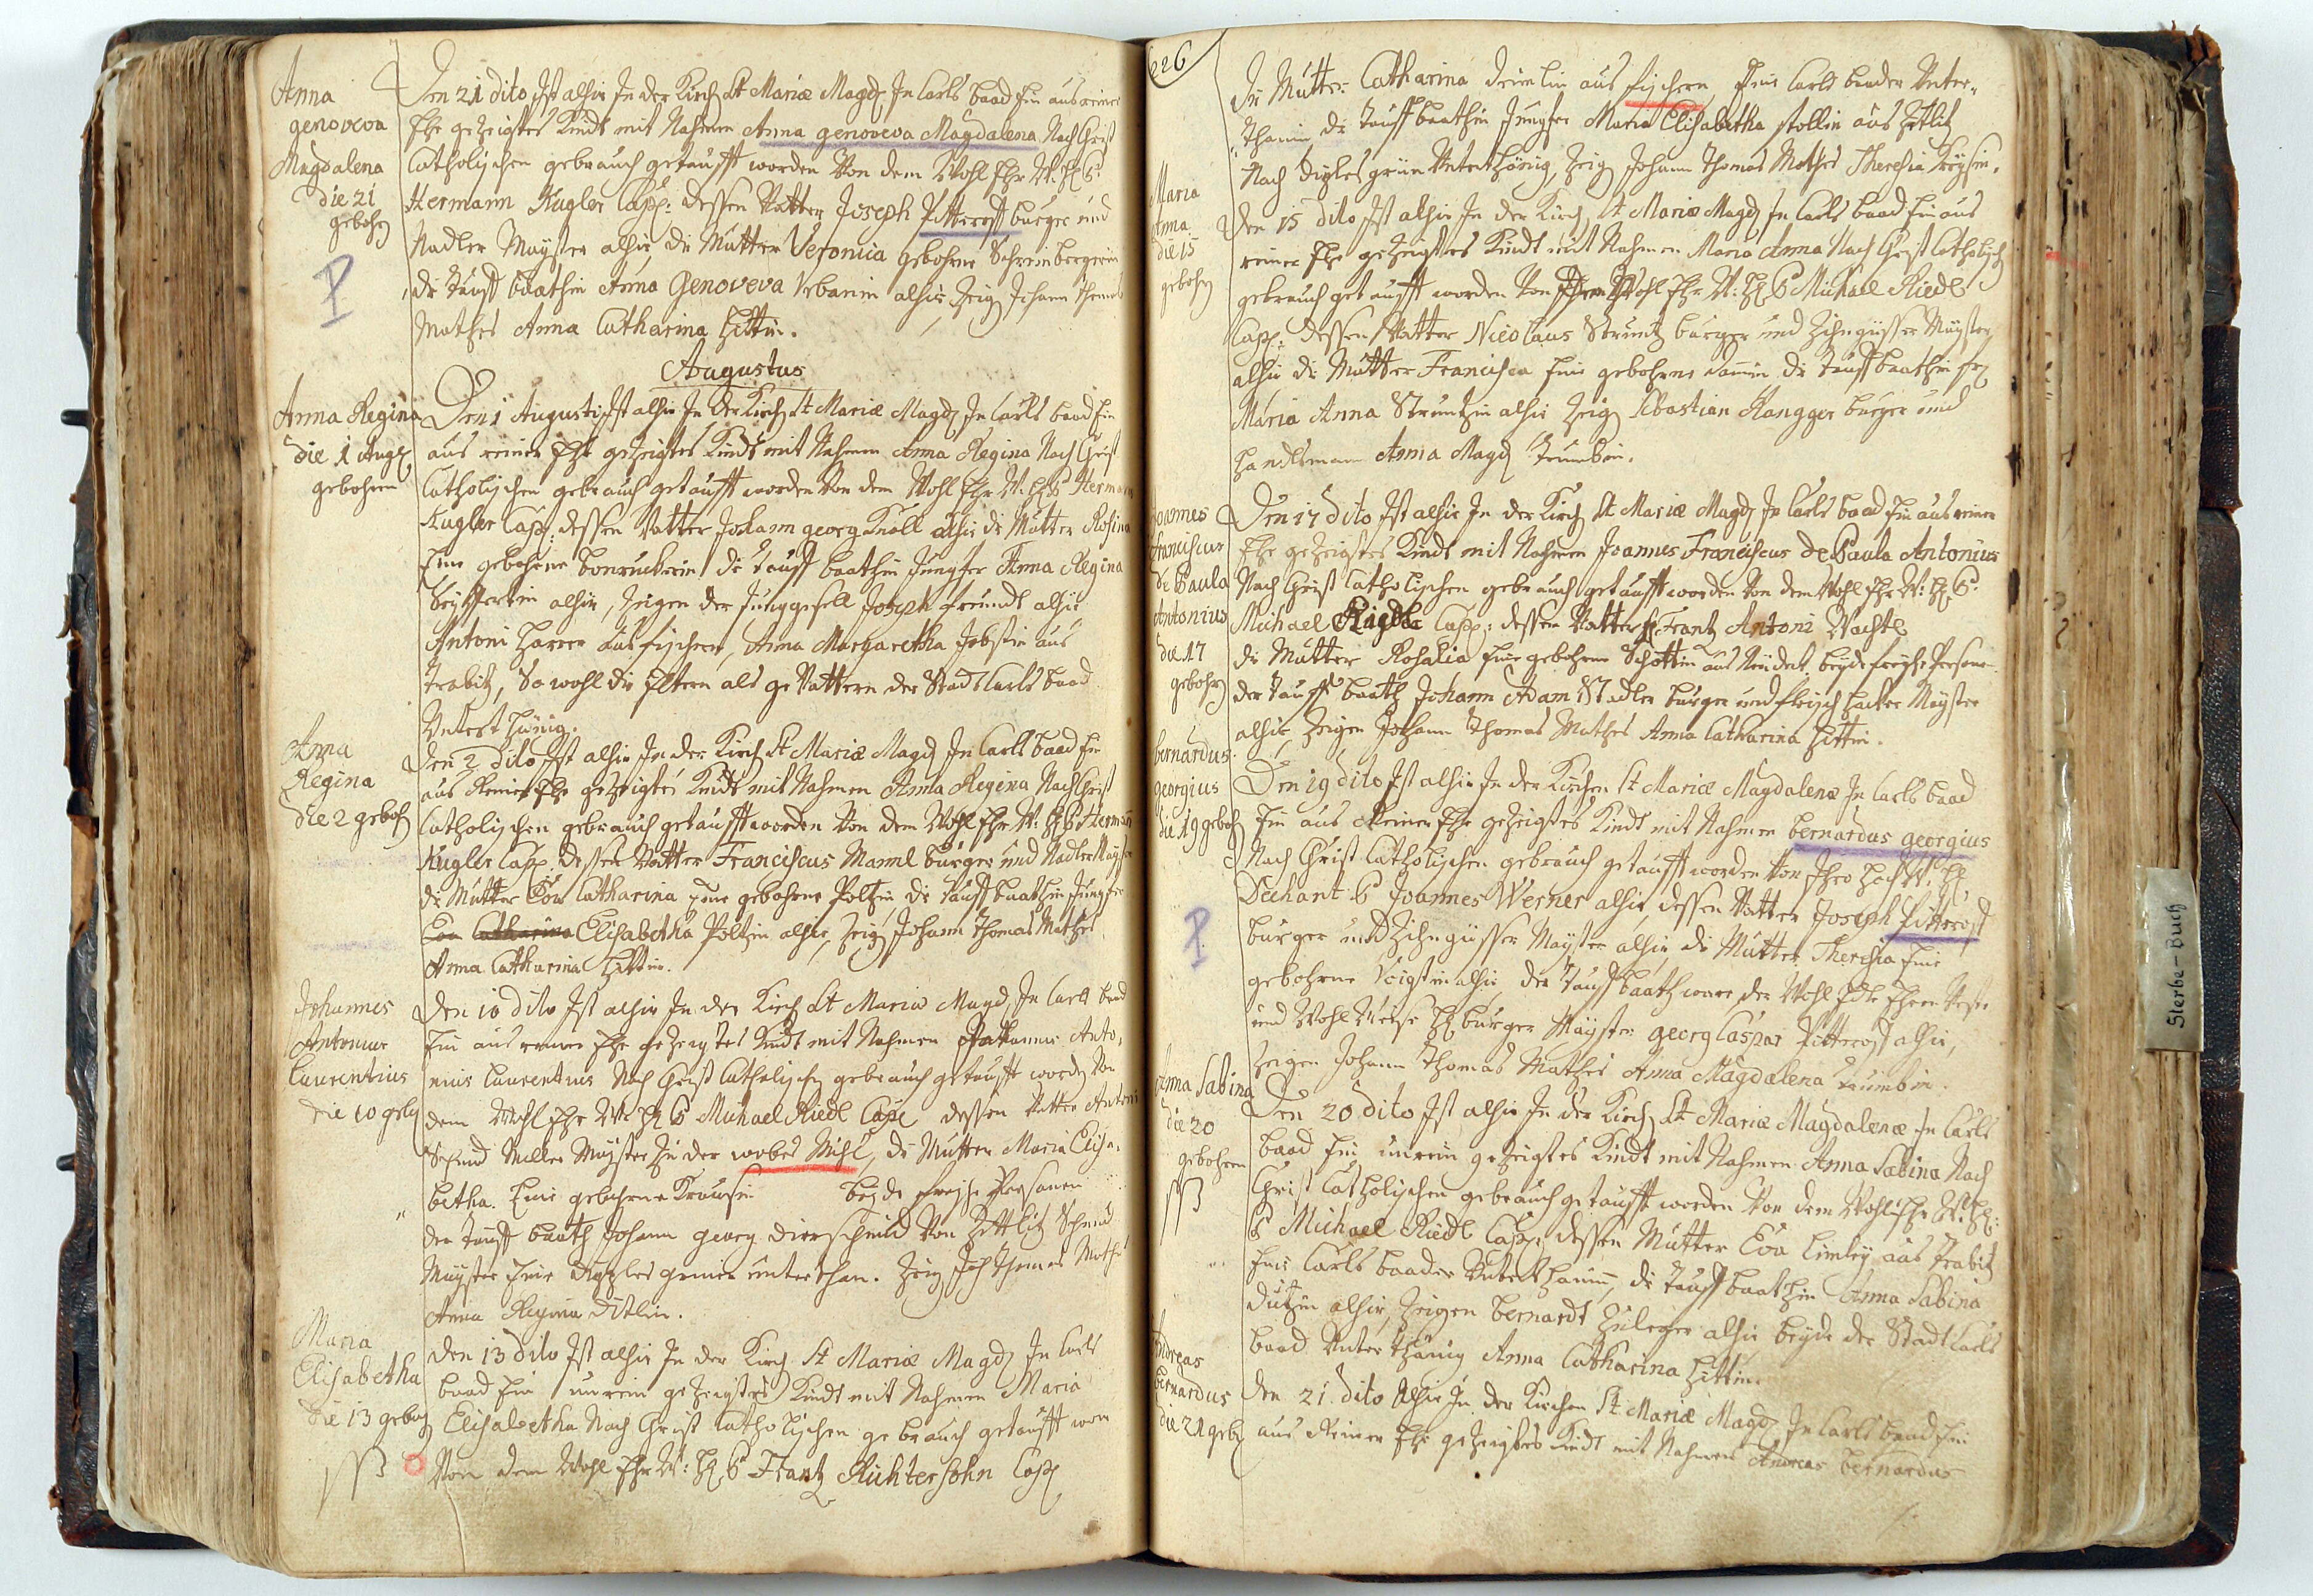 Anna
genoveva
Magdalena
die 21
gebohrn
Den 21 dito Ist alhir In der Kirch St Mariæ Magd. In Carls baad Ein aus reiner
Ehe gezeigtes Kindt mit Nahmen Anna genoveva Magdalena Nach Christ
Catholischen gebrauch getaufft worden Von dem Wohl Ehr W: H: P:
Hermann Kugler Capp: dessen Vatter Joseph Pitteroff burger und
Nadler Mayster alhir die Mutter Veronica gebohrne Schreinbergerin
die tauff baathin Anna Genoveva Urbanin alhir, Zeig Johann Thomas
Mathes Anna Catharina Hittin.
Augustus
Anna Regina
die 1 Aug
gebohrn
Den 1 Augusti Ist alhir In der Kirch St Mariæ Magd. In Carls baad Ein
aus reiner Ehe gezeigtes Kindt mit Nahmen Anna Regina Nach Christ
Catholischen gebrauch getaufft worden Von dem Wohl Ehr W: H: P Hermann
Kugler Capp: dessen Vatter Johann georg Knoll alhir die Mutter Rosina
Eine gebohrne die tauff baathin Jungfer Anna Regina
alhir, Zeigen der Junggesell Joseph freundt alhir
Antoni Harrer aus fischern, Anna Margaretha Jobstin aus
Trabitz, So wohl die Eltern als geVattern der Stadt Carls baad
Unterthänig.
Anna
Regina
die 2 geboh
Den 2 dito Ist alhir In der Kirch St Mariæ Magd. In Carls baad Ein
aus Reiner Ehe gezeigtes Kindt mit Nahmen Anna Regina Nach Christ
Catholischen gebrauch getaufft worden Von dem Wohl Ehr W: H: P Hermann
Kugler Capp. dessen Vatter Franciscus Mannl burger und Nadler Mayster
die Mutter Eva Catharina Eine gebohrne Poltzin die tauff baathin Jungfer
Eva Catharina Elisabetha Poltzin alhir, Zeig Johann Thomas Mathes
Anna Catharina Hittin.
Johannes
Antonius
Laurentius
die 10 geb
Den 10 dito Ist alhir In der Kirch St Mariæ Magd. In Carls baad
Ein aus reiner Ehe gezeigtes Kindt mit Nahmen Johannes Anto,
nius Laurentius Nach Christ Catholischen gebrauch getaufft worden Von
dem Wohl Ehr W: H: P Michael Riedl Capp dessen Vatter Antoni
Schmid Miller Mayster Zu der Mihl, die Mutter Maria Elisa,
betha Eine gebohrne Krausin beyde freyhe Personen
der Tauff baath Johann georg Von Zettlitz Schmid
Mayster Eine unterthan. Zeig Joh Thomas Mathes
Anna Regina
Maria
Elisabetha
die 13 geboh
Den 13 dito Ist alhir In der Kirch St Mariæ Magd. In Carls
baad Ein unrein gezeigtes Kindt mit Nahmen Maria
Elisabetha Nach Christ Catholischen gebrauch getaufft worn
Von dem Wohl Ehr W: H: P Frantz Richtersohn Capp
226
die Mutter Catharina aus fischern, Eine Carls baader Unter,
thanin die Tauff baathin Jungfer Maria Elisabetha Stollin aus Zetlitz
Nach Unterthänig, Zeig Johann Thomas Mathes Theresia
Maria
Anna
die 15
gebohrn
Den 15 dito Ist alhir In der Kirch St Mariæ Magd. In Carls baad Ein aus
reiner Ehe gezeigtes Kindt mit Nahmen Maria Anna Nach Christ Catholisch
gebrauch getaufft worden Von Wohl Ehr W: H: P Michael Riedl
Capp: dessen Vatter Nicolaus Struntz burger und Zihngüsser Mayster
alhir die Mutter Francisca Eine gebohrne die tauff baathin
Maria Anna Struntzin alhir Zeig Sebastian Hangger burger und
Handlsmann Anna Magd
Joannes
Franciscus
de Paula
Antonius
die 17
gebohrn
Den 17 dito Ist alhir In der Kirch St Mariæ Magd. In Carls baad Ein aus reiner
Ehe gezeigtes Kindt mit Nahmen Joannes Franciscus de Paula Antonius
Nach Christ Catholischen gebrauch getaufft worden Von dem Wohl Ehr W: H: P:
Michael Riedl Capp: dessen Vatter Frantz Antoni Wachtl
die Mutter Rosalia Eine gebohrne Schottin aus beyde freyhe Persone
der tauff baath Johann Adam Stadler burger und fleisch hacker Mayster
alhir Zeigen Johann Thomas Mathes Anna Catharina Hittin.
bernardus
georgius
die 19 geboh
Den 19 dito Ist alhir In der Kirchen St Mariæ Magdalenæ In Carls baad
Ein aus Reiner Ehe gezeigtes Kindt mit Nahmen bernardus georgius
Nach Christ Catholischen gebrauch getaufft worden Von Ihro Hoch W: H:
Dechant P Joannes Werner alhir, dessen Vatter Joseph Pitteroff
burger und Zihngüsser Mayster alhir, die Mutter Theresia Eine
gebohrne Voigtin alhir, der Tauff baath ware der Wohl Edle Veste
und Wohl Weise H: burger Mayster georg Caspar Pitteroff alhir,
Zeigen Johann Thomas Mathes Anna Magdalena
Anna Sabina
die 20
gebohren
Den 20 dito Ist alhir In der Kirch St Mariæ Magdalenæ In Carls
baad Ein unrein gezeigtes Kindt mit Nahmen Anna Sabina Nach
Christ Catholischen gebrauch getaufft worden Von dem Wohl Ehr W: H:
P Michael Riedl Capp: dessen Mutter Eva aus Trabitz
Eine Carls baader Unterthanin, die Tauff baathin Anna Sabina
alhir, Zeigen bernardt alhir beyde der Stadt Carls
baad Unterthänig Anna Catharina Hittin.
Andreas
bernardus
die 21 geb
Den 21 dito Alhir In der Kirchen St Mariæ Magd. In Carls baad Ein
aus Reiner Ehe gezeigtes Kindt mit Nahmen Andreas bernardus
Sterbe-Buch